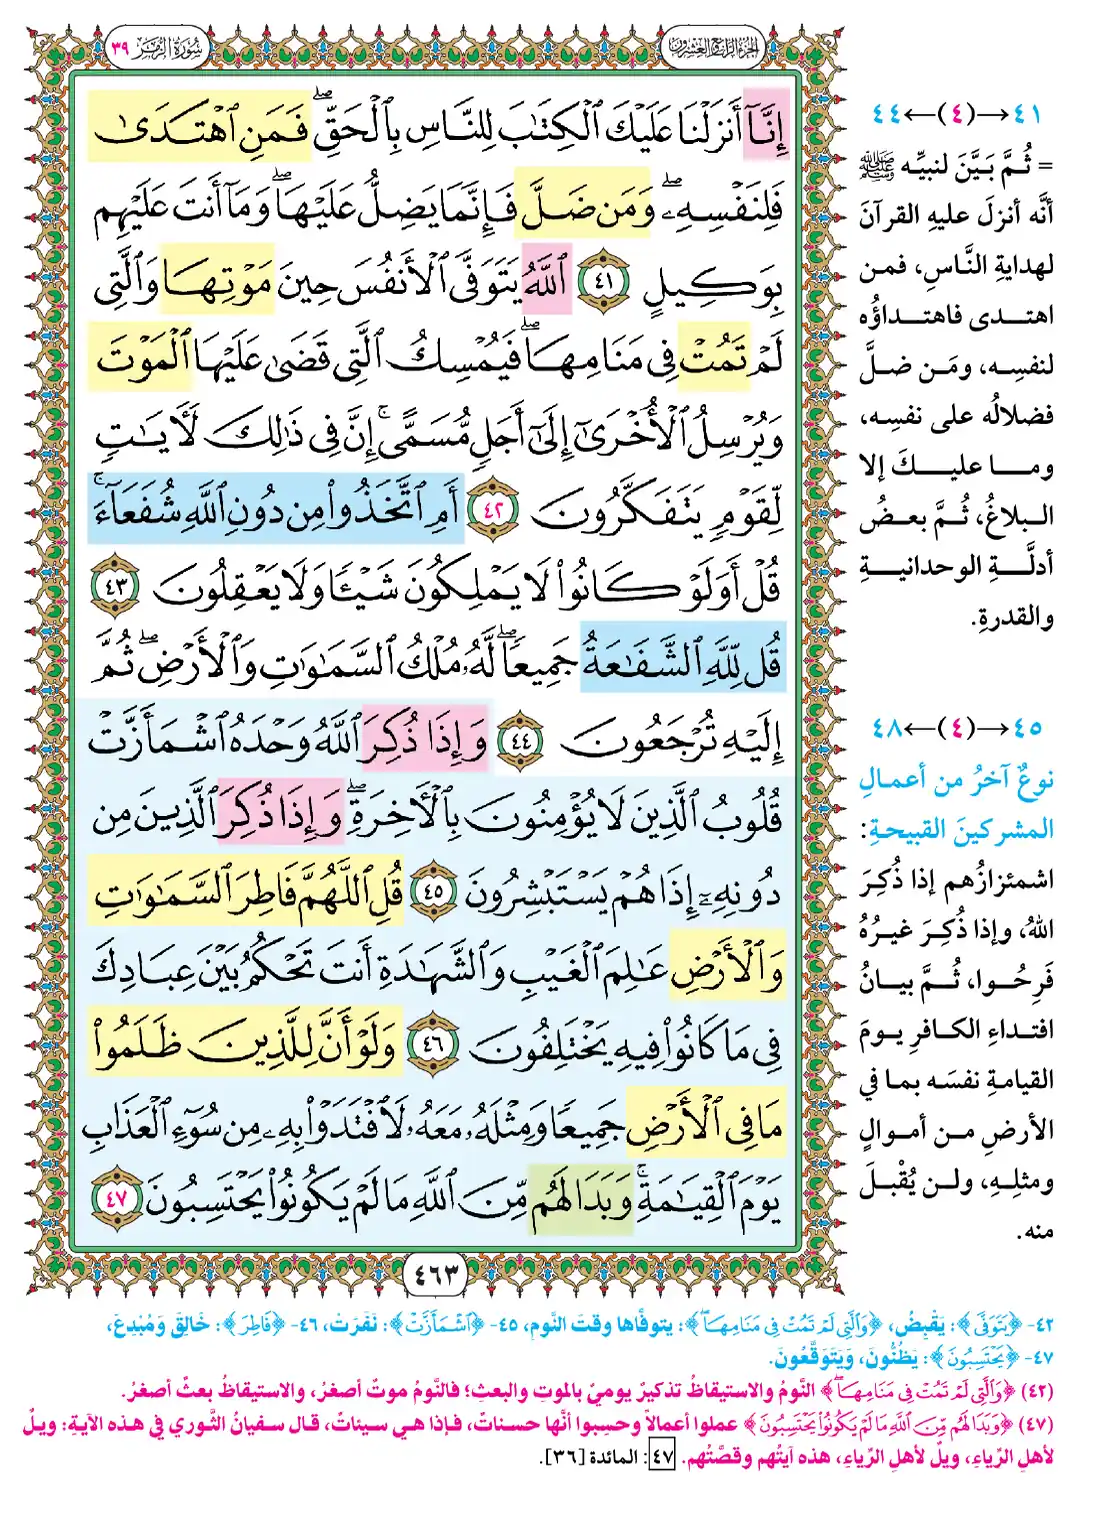 الجزء الرابع والعشرون
سورة الزمر ٣٩
إِنَّآ أَنزَلْنَا عَلَيْكَ ٱلْكِتَٰبَ لِلنَّاسِ بِٱلْحَقِّ ۖ فَمَنِ ٱهْتَدَىٰ
فَلِنَفْسِهِۦ ۖ وَمَن ضَلَّ فَإِنَّمَا يَضِلُّ عَلَيْهَا ۖ وَمَآ أَنتَ عَلَيْهِم
بِوَكِيلٍ ٤١ ٱللَّهُ يَتَوَفَّى ٱلْأَنفُسَ حِينَ مَوْتِهَا وَٱلَّتِى
لَمْ تَمُتْ فِى مَنَامِهَا ۖ فَيُمْسِكُ ٱلَّتِى قَضَىٰ عَلَيْهَا ٱلْمَوْتَ
وَيُرْسِلُ ٱلْأُخْرَىٰٓ إِلَىٰٓ أَجَلٍ مُّسَمًّى ۚ إِنَّ فِى ذَٰلِكَ لَـَٔايَٰتٍ
لِّقَوْمٍ يَتَفَكَّرُونَ ٤٢ أَمِ ٱتَّخَذُوا۟ مِن دُونِ ٱللَّهِ شُفَعَآءَ ۚ
قُلْ أَوَلَوْ كَانُوا۟ لَا يَمْلِكُونَ شَيْـًٔا وَلَا يَعْقِلُونَ ٤٣
قُل لِّلَّهِ ٱلشَّفَٰعَةُ جَمِيعًا ۖ لَّهُۥ مُلْكُ ٱلسَّمَٰوَٰتِ وَٱلْأَرْضِ ۖ ثُمَّ
إِلَيْهِ تُرْجَعُونَ ٤٤ وَإِذَا ذُكِرَ ٱللَّهُ وَحْدَهُ ٱشْمَأَزَّتْ
قُلُوبُ ٱلَّذِينَ لَا يُؤْمِنُونَ بِٱلْـَٔاخِرَةِ ۖ وَإِذَا ذُكِرَ ٱلَّذِينَ مِن
دُونِهِۦٓ إِذَا هُمْ يَسْتَبْشِرُونَ ٤٥ قُلِ ٱللَّهُمَّ فَاطِرَ ٱلسَّمَٰوَٰتِ
وَٱلْأَرْضِ عَٰلِمَ ٱلْغَيْبِ وَٱلشَّهَٰدَةِ أَنتَ تَحْكُمُ بَيْنَ عِبَادِكَ
فِى مَا كَانُوا۟ فِيهِ يَخْتَلِفُونَ ٤٦ وَلَوْ أَنَّ لِلَّذِينَ ظَلَمُوا۟
مَا فِى ٱلْأَرْضِ جَمِيعًا وَمِثْلَهُۥ مَعَهُۥ لَٱفْتَدَوْا۟ بِهِۦ مِن سُوٓءِ ٱلْعَذَابِ
يَوْمَ ٱلْقِيَٰمَةِ ۚ وَبَدَا لَهُم مِّنَ ٱللَّهِ مَا لَمْ يَكُونُوا۟ يَحْتَسِبُونَ ٤٧
٤٦٣
٤١→(٤)←٤٤
= ثُمَّ بَيَّنَ لنبيِّه ﷺ
أنَّه أنزلَ عليهِ القرآنَ
لهدايةِ النَّاسِ، فمن
اهتدى فاهتداؤُه
لنفسِه، ومَن ضلَّ
فضلالُه على نفسِه،
وما عليكَ إلا
البلاغُ، ثُمَّ بعضُ
أدلَّةِ الوحدانيةِ
والقدرةِ.
٤٥→(٤)←٤٨
نوعٌ آخرُ من أعمالِ
المشركينَ القبيحةِ:
اشمئزازُهم إذا ذُكِرَ
اللهُ، وإذا ذُكِرَ غيرُهُ
فَرِحُوا، ثُمَّ بيانُ
افتداءِ الكافرِ يومَ
القيامةِ نفسَه بما في
الأرضِ من أموالٍ
ومثلِهِ، ولن يُقْبلَ
منه.
٤٢- ﴿يَتَوَفَّى﴾: يَقْبِضُ، ﴿وَٱلَّتِى لَمْ تَمُتْ فِى مَنَامِهَا ۖ﴾: يتوفَّاها وقتَ النَّوم، ٤٥- ﴿ٱشْمَأَزَّتْ﴾: نَفَرَتْ، ٤٦- ﴿فَاطِرَ﴾: خَالِقَ وَمُبْدِعَ،
٤٧- ﴿يَحْتَسِبُونَ﴾: يَظُنُّونَ، وَيَتَوَقَّعُونَ.
(٤٢) ﴿وَٱلَّتِى لَمْ تَمُتْ فِى مَنَامِهَا ۖ﴾ النَّومُ والاستيقاظُ تذكيرٌ يوميٌّ بالموتِ والبعثِ؛ فالنَّومُ موتٌ أصغرُ، والاستيقاظُ بعثٌ أصغرُ.
(٤٧) ﴿وَبَدَا لَهُم مِّنَ ٱللَّهِ مَا لَمْ يَكُونُوا۟ يَحْتَسِبُونَ﴾ عملوا أعمالاً وحسِبوا أنَّها حسناتٌ، فإذا هي سيئاتٌ، قال سفيانُ الثَّوري في هذه الآيةِ: ويلٌ
لأهلِ الرِّياءِ، ويلٌ لأهلِ الرِّياءِ، هذه آيتُهم وقصَّتُهم. ٤٧: المائدة [٣٦].